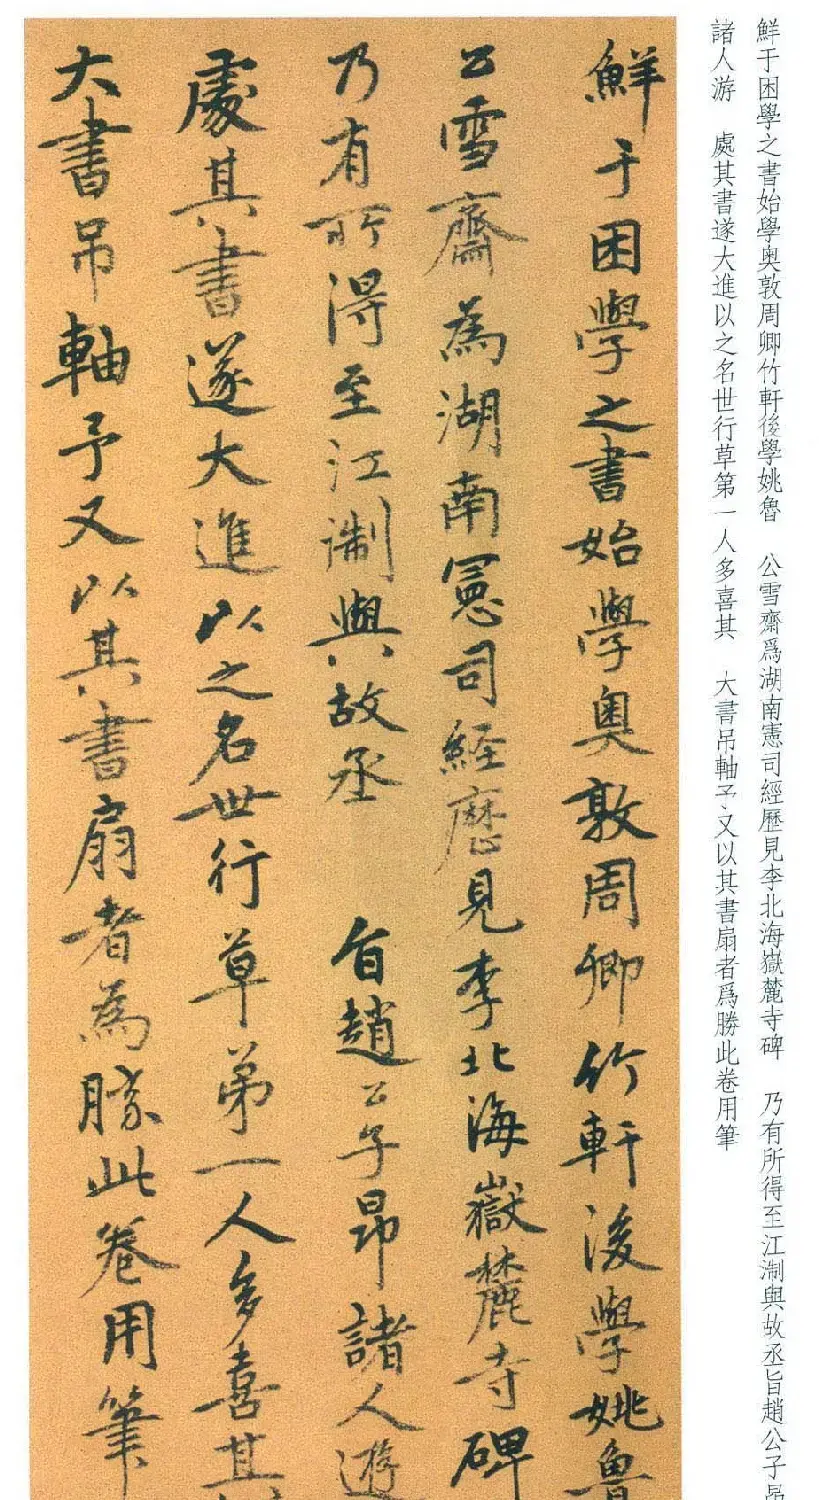 鮮于困學之書始學奧敦周卿竹軒後學姚魯　公雪齋爲湖南憲司經歷見李北海嶽麓寺碑　乃有所得至江淛與故丞旨趙公子昂
諸人游　處其書遂大進以之名世行草第一人多喜其　大書吊軸予又以其書扇者爲勝此卷用筆
鮮于困學之書始學奧敦周卿竹軒後學姚魯
公雪齋為湖南憲司経歷見李北海嶽麓寺碑
乃有所得至江淛與故丞 旨趙公子昂諸人遊
處其書遂大進以之名世行草第一人多喜其
大書吊軸予又以其書扇者為勝此卷用筆